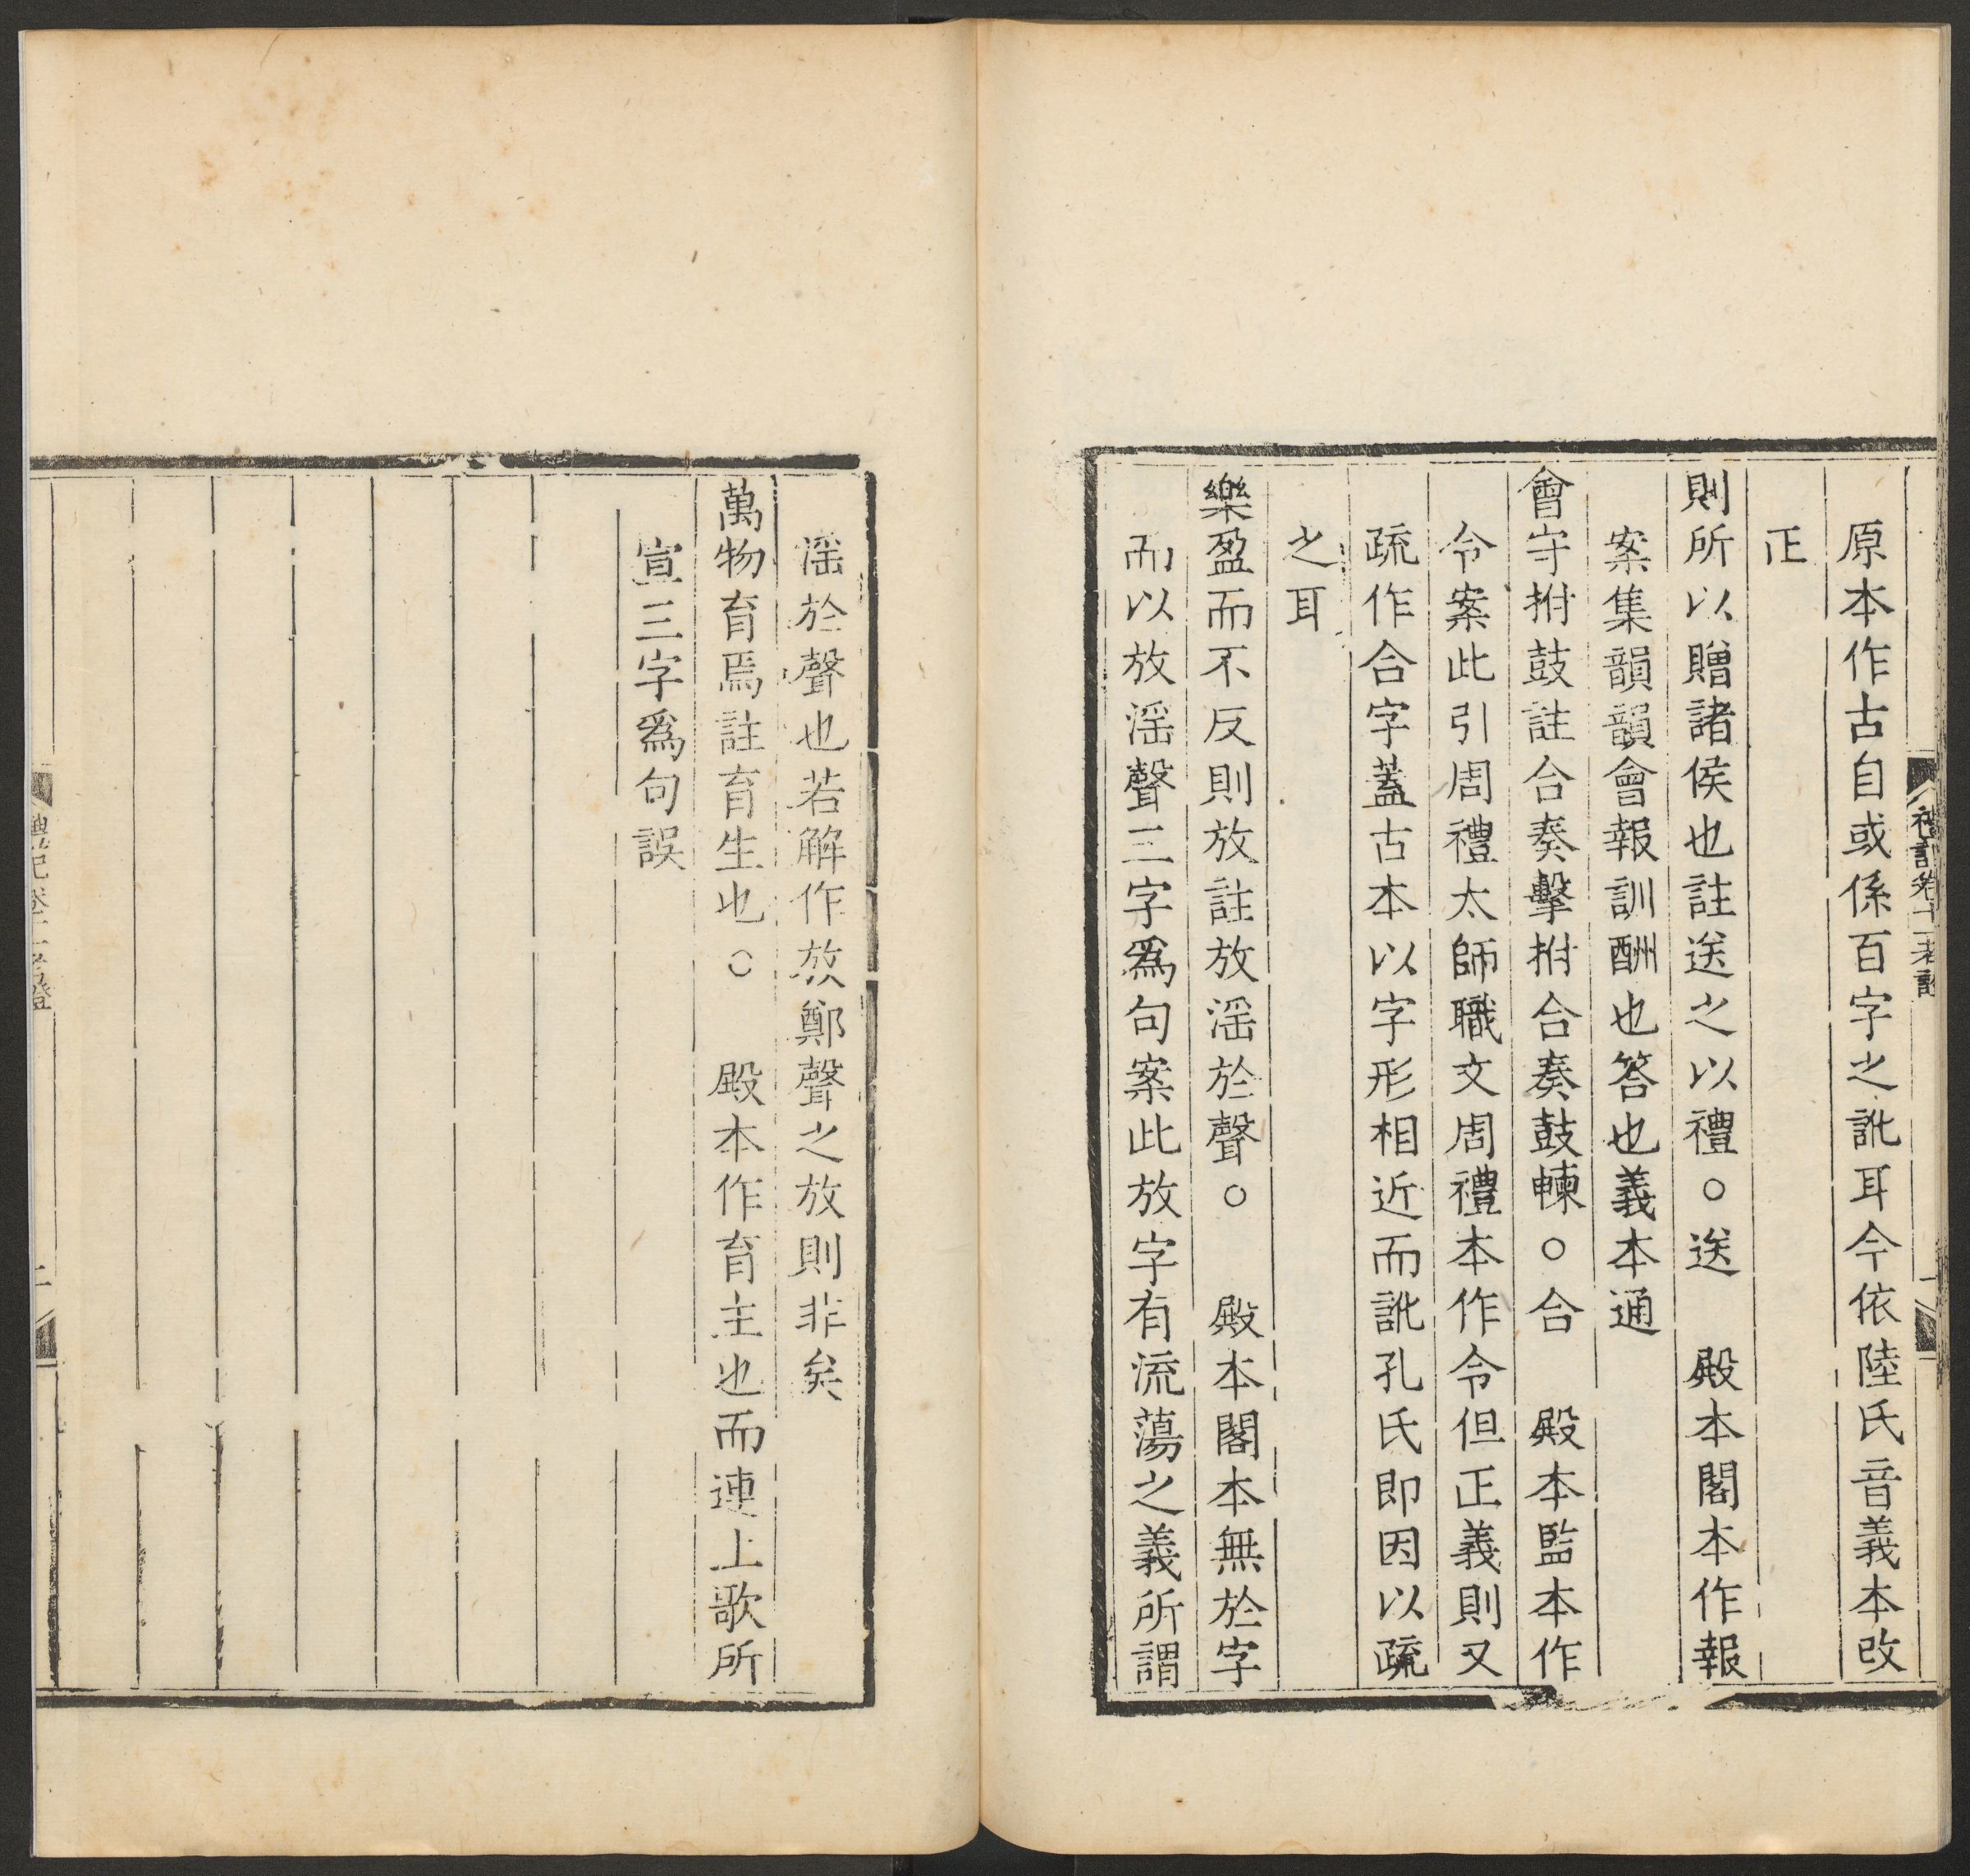 禮記卷十一考證
原本作古自或係百字之訛耳今依陸氏音義本改
正
則所以贈諸侯也註送之以禮○送　殿本閣本作報
案集韻韻會報訓酬也答也義本通
會守拊鼓註合奏擊拊合奏鼓朄○合　殿本監本作
令案此引周禮太師職文周禮本作令但正義則又
疏作合字蓋古本以字形相近而訛孔氏即因以疏
之耳
樂盈而不反則放註放滛於聲○　殿本閣本無於字
而以放滛聲三字爲句案此放字有流蕩之義所謂
滛於聲也若解作放鄭聲之放則非矣
萬物育焉註育生也○　殿本作育主也而連上歌所
宣三字爲句誤